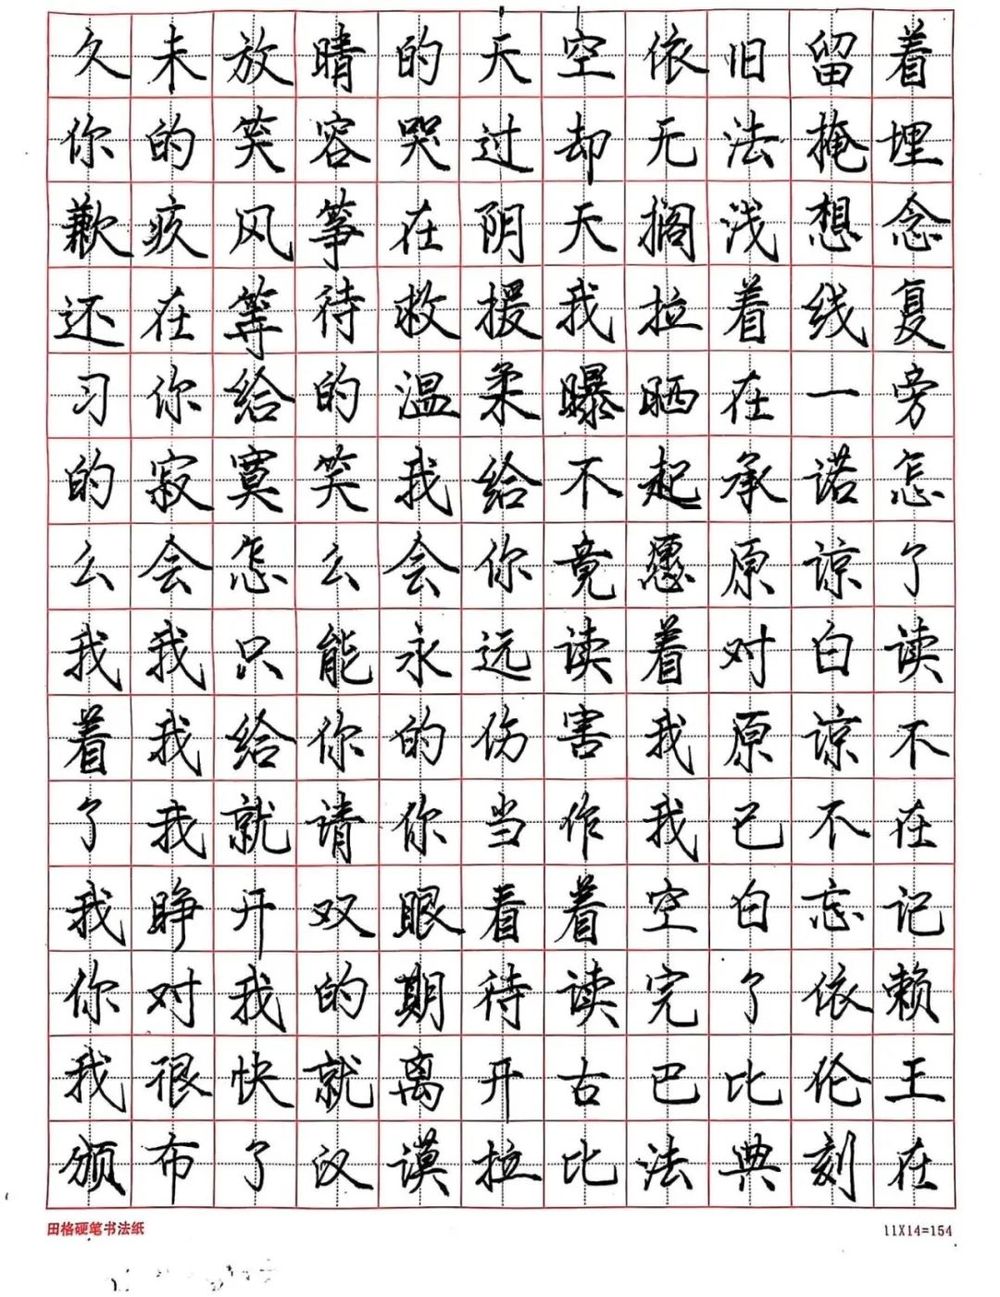 久未放晴的天空依旧留着
你的笑容哭过却无法掩埋
歉疚风筝在阴天搁浅想念
还在等待救援我拉着线复
习你给的温柔曝晒在一旁
的寂寞笑我给不起承诺怎
么会怎么会你竟愿原谅了
我我只能永远读着对白读
着我给你的伤害我原谅不
了我就请你当作我已不在
我睁开双眼看着空白忘记
你对我的期待读完了依赖
我很快就离开古巴比伦王
颁布了汉谟拉比法典刻在
田格硬笔书法纸
11X14=154